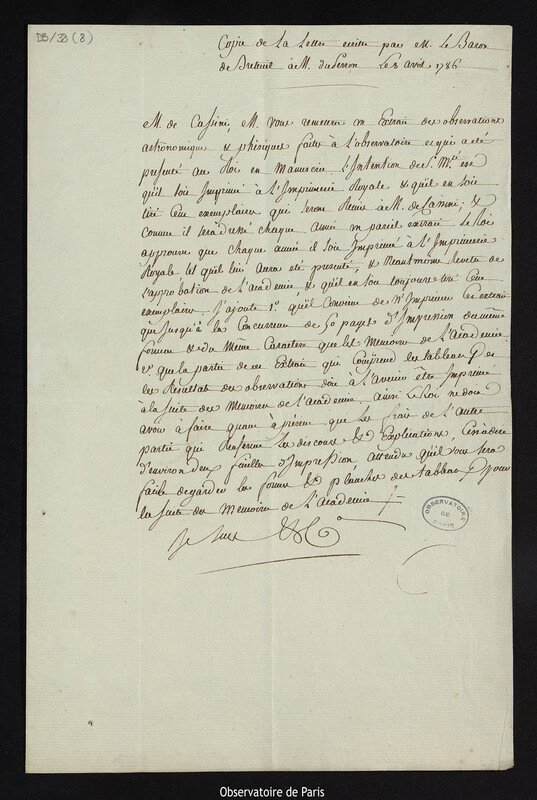 D5/38 (8)
Copie de la Lettre ecritte par M. Le Baron
de Breteuil à M. duPerron Le 8 avril 1786
M. de Cassini, M. vous remettra un Extrait des observations
astronomique & phisiques faites à l'observatoire et qui a été
présenté au Roi en Manuscrit. L'Intention de S. Mté est
qu'il soit Imprimé à L'Imprimerie Royale & qu'il en soit
tiré Cent exemplaires qui seront Remis à M. de Cassini; &
Comme il seradressé chaque année un pareil extrait Le Roi
approuve que chaque année il soit Imprimé à L'Imprimerie
Royale tel qu'il lui Aura été présenté, & Neantmoins Revetu de
L'approbation de L'académie, & qu'il en soit toujours tiré Cent
exemplaires. J'ajoute 1.° qu'il Convient de n'Imprimer Ces extraits
que Jusqu'à la Concurrence de 50 pages d'Impression du même
format & du Même Caractere que les Memoires de L'Academie
2.° que la partie de ces Extraits qui Comprend les tableaux & des
les Résultats des observations doit à L'avenir être Imprimée
à la suite des Memoires de L'academie. ainsi Le Roi ne doit
avoir à faire quant à présent que les frais de L'autre
partie qui Renferme les discours & Explications, C'est à dire
d'environ deux feuilles d'Impression attendu qu'il vous sera
facile de garder les formes & plánches des tableaux pour
la suite des Memoires de L'Academie
Je suis &c
OBSERVATOIRE
DE
PARIS
Observatoire de Paris